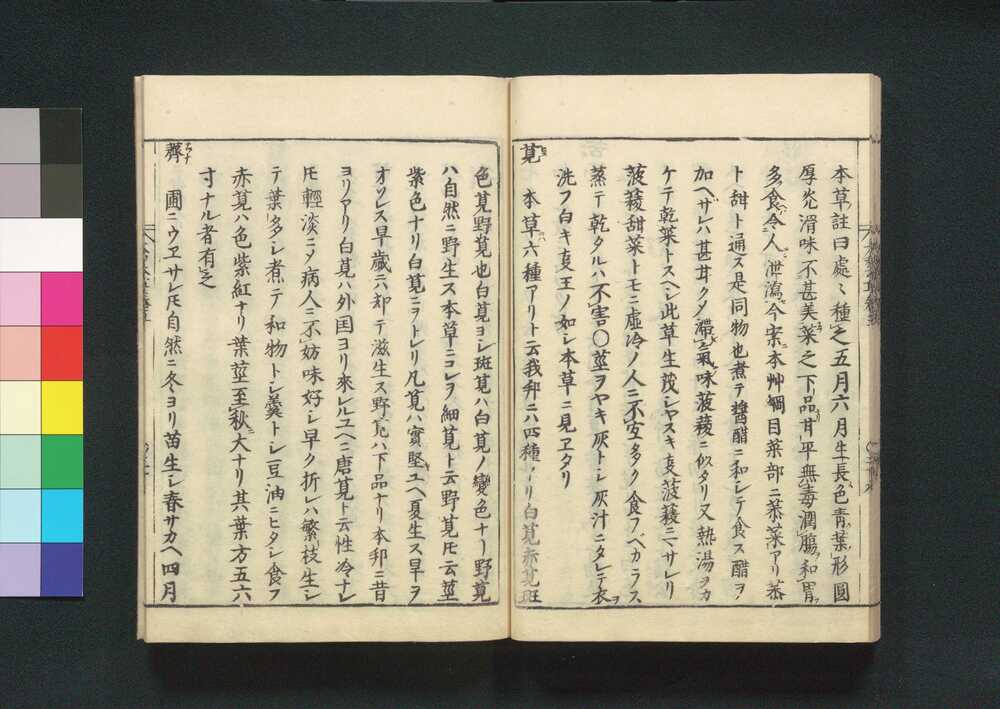 本草註曰處々種之五月六月生長色青葉形圓
厚光滑味不甚美菜之下品甘平無毒潤腸和胃
多食令人泄瀉今案本艸綱目菜部ニ菾菜アリ菾
ト甜ト通ス是同物也煮テ醬醋ニ和シテ食ス醋ヲ
加ヘザレハ甚甘クメ滯氣味菠薐ニ似タリ又熱湯ヲカ
ケテ乾菜トスヘシ此草生茂シヤスキヿ菠薐ニマサレリ
菠薐甜菜トモニ虛冷ノ人ニ不宜多ク食フヘカラス
蒸テ乾タルハ不害〇莖ヲヤキ灰トシ灰汁ニタレテ衣ヲ
洗フ白キヿ玉ノ如シ本草ニ見ヱタリ
莧 本草六種アリト云我邦ニハ四種アリ白莧赤莧斑
色莧野莧也白莧ヨシ斑莧ハ白莧ノ變色ナリ野莧
ハ自然ニ野生ス本草ニコレヲ細莧ト云野莧𪜈云莖
紫色ナリ白莧ニヲトレリ凡莧ハ實堅ユヘ夏生ス早ヲ
オソレス旱歲ニハ却テ滋生ス野莧ハ下品ナリ本邦ニ昔
ヨリアリ白莧ハ外国ヨリ來レルユヘニ唐莧ト云性冷ナレ
𪜈輕淡ニメ病人ニ不妨味好シ早ク折レハ繁枝生シ
テ葉多シ煮テ和物トシ羹トシ豆油ニヒタシ食フ
赤莧ハ色紫紅ナリ葉莖至秋大ナリ其葉方五六
寸ナル者有之
薺 圃ニウヱサレ𪜈自然ニ冬ヨリ苗生シ春サカヘ四月